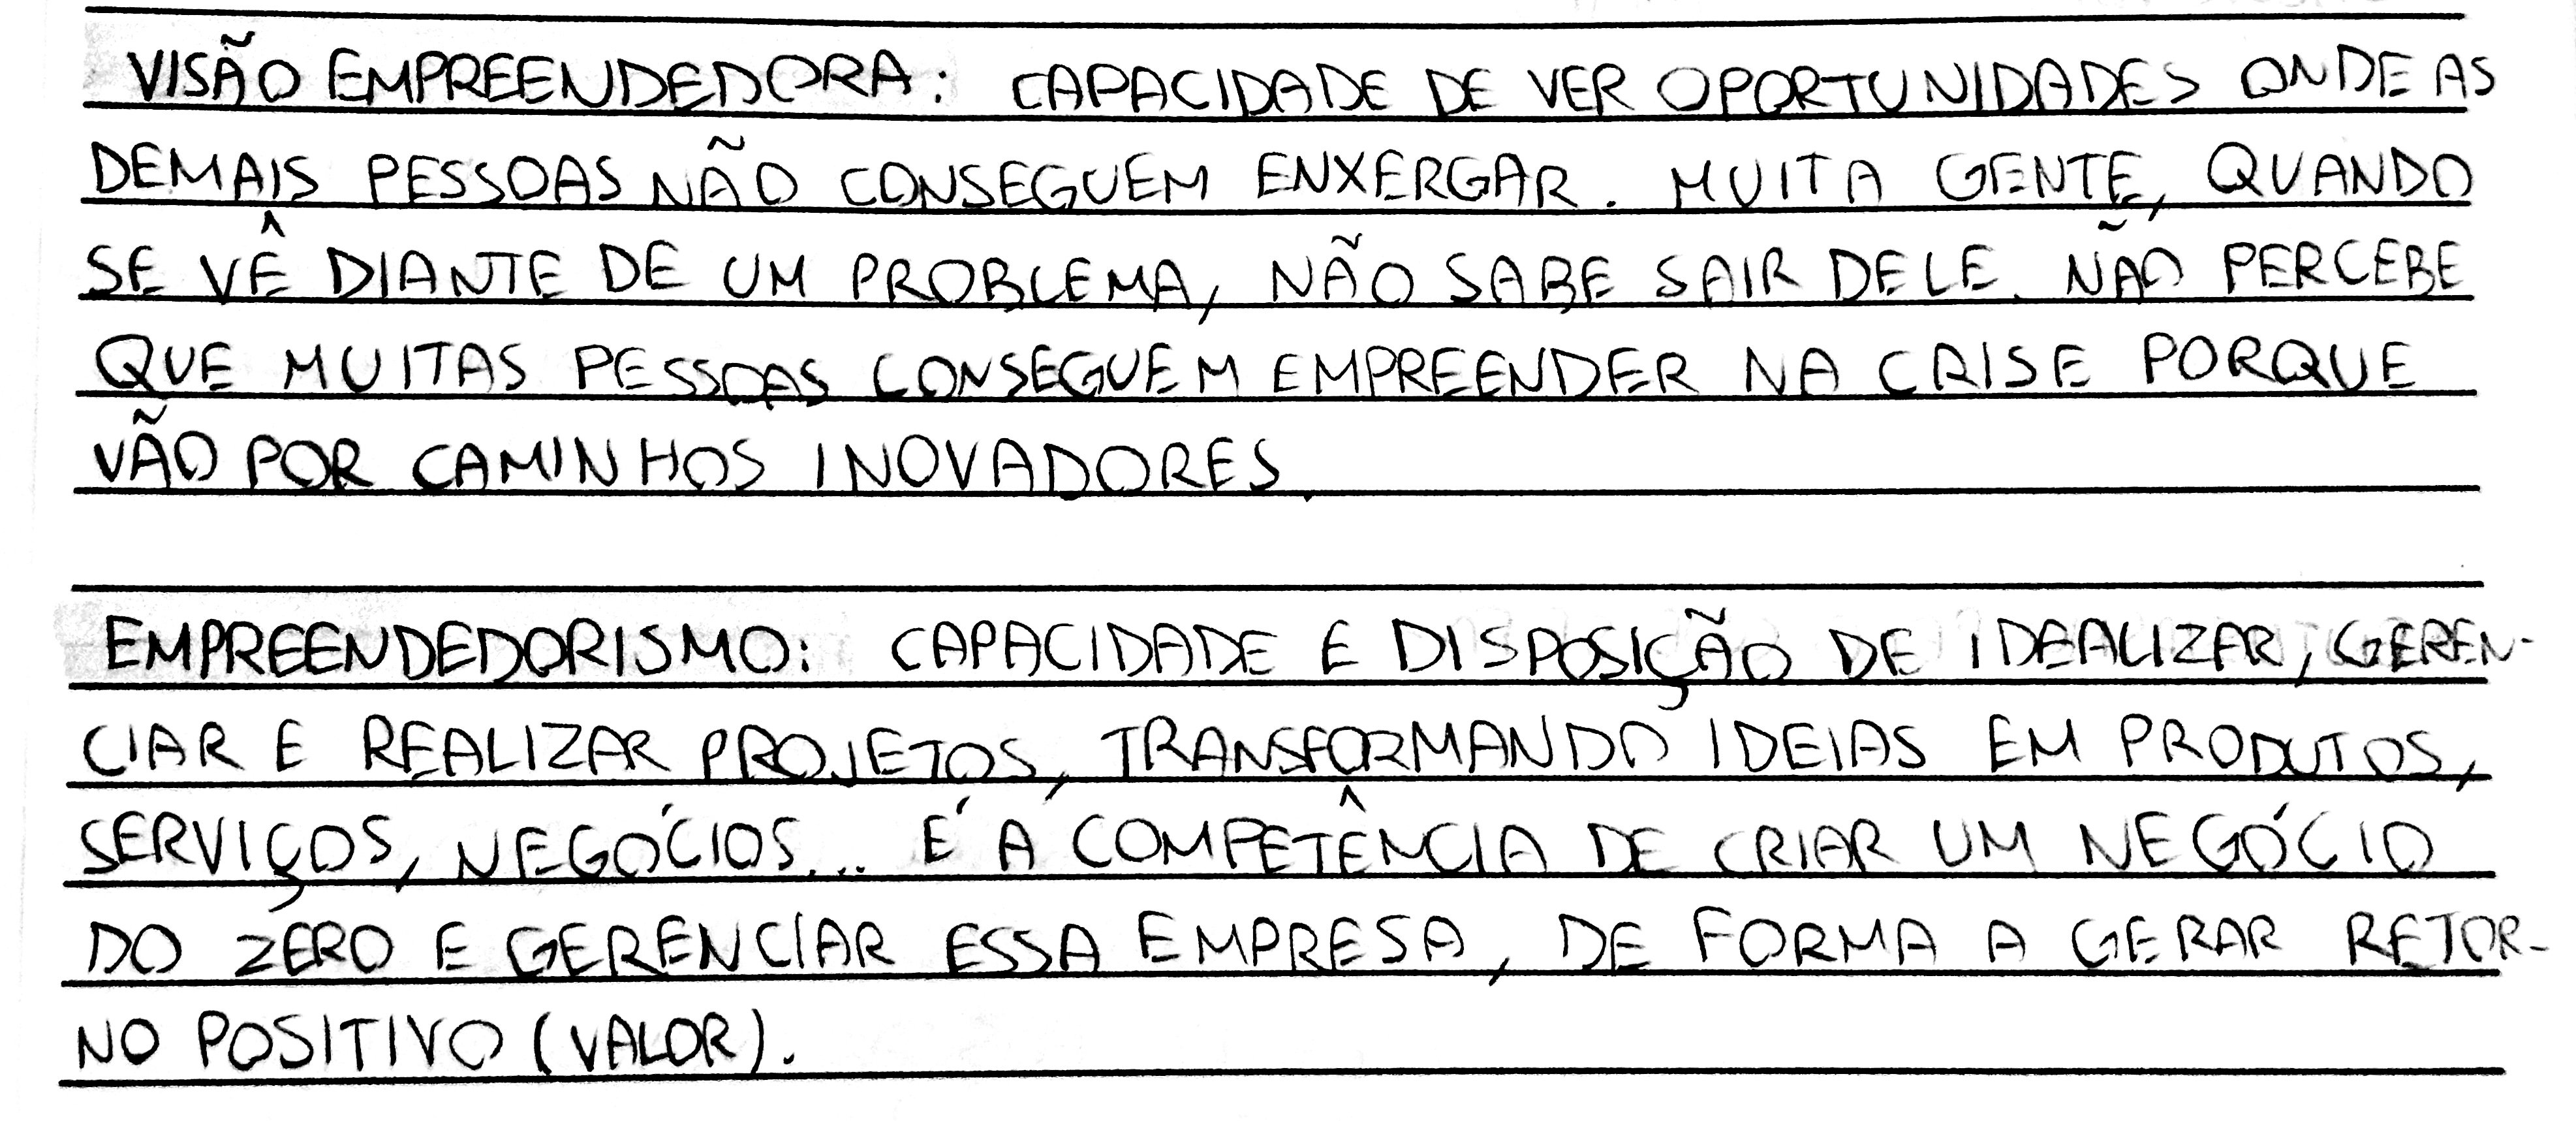 VISÃO EMPREENDEDORA: CAPACIDADE DE VER OPORTUNIDADES ONDE AS
DEMAIS PESSOAS NÃO CONSEGUEM ENXERGAR. MUITA GENTE, QUANDO
SE VÊ DIANTE DE UM PROBLEMA, NÃO SABE SAIR DELE. NÃO PERCEBE
QUE MUITAS PESSOAS CONSEGUEM EMPREENDER NA CRISE PORQUE
VÃO POR CAMINHOS INOVADORES.
EMPREENDEDORISMO: CAPACIDADE E DISPOSIÇÃO DE IDEALIZAR, GEREN-
CIAR E REALIZAR PROJETOS, TRANSFORMANDO IDEIAS EM PRODUTOS,
SERVIÇOS, NEGÓCIOS... É A COMPETÊNCIA DE CRIAR UM NEGÓCIO
DO ZERO E GERENCIAR ESSA EMPRESA, DE FORMA A GERAR RETOR-
NO POSITIVO (VALOR).